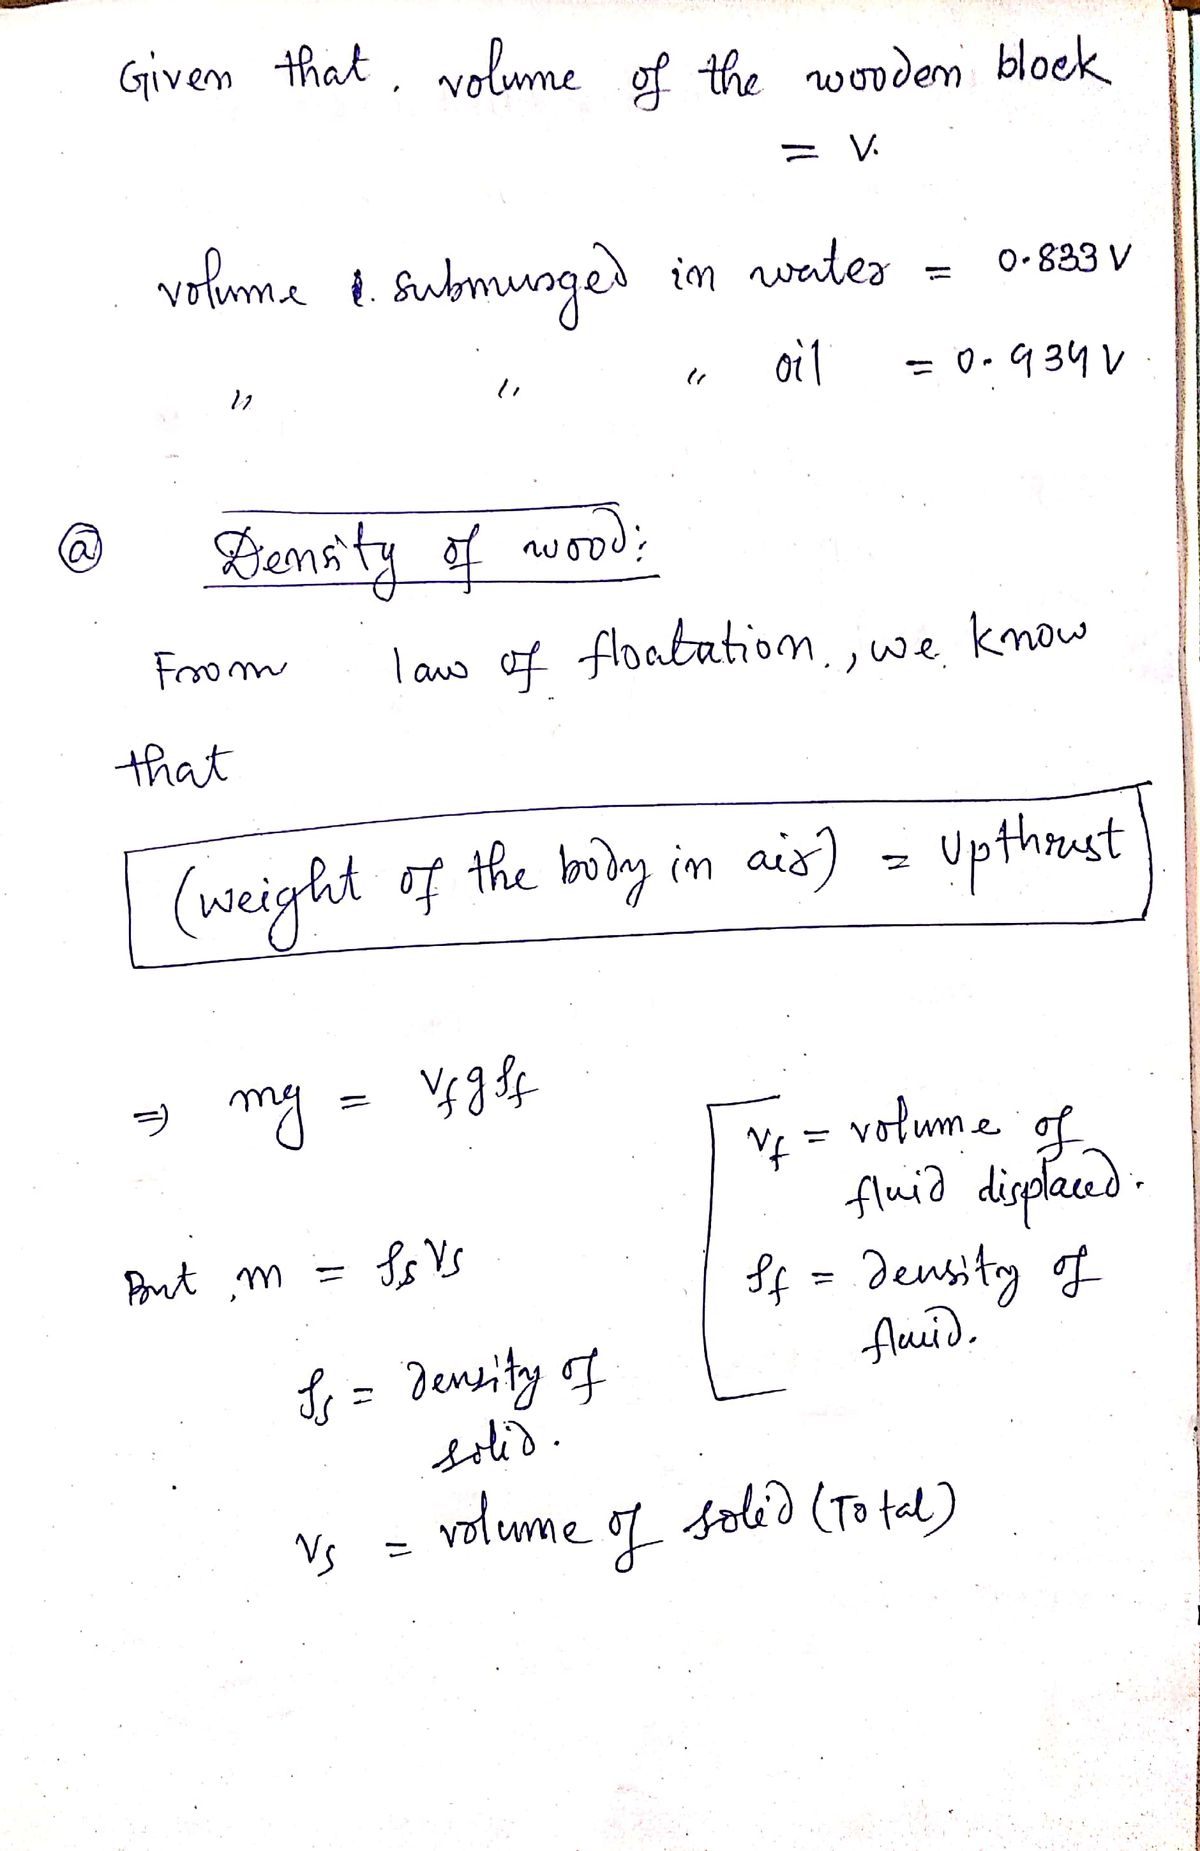 Given that, volume of the wooden block
= V.
volume submurged in water = 0.833 V
" " " oil = 0.934 V
(a) Density of wood:
From law of floatation, we know
that
(weight of the body in air) = Upthrust
⇒ mg = Vf g ρf
Vf = volume of
fluid displaced.
ρf = density of
fluid.
But, m = ρs Vs
ρs = density of
solid.
Vs = volume of solid (Total)